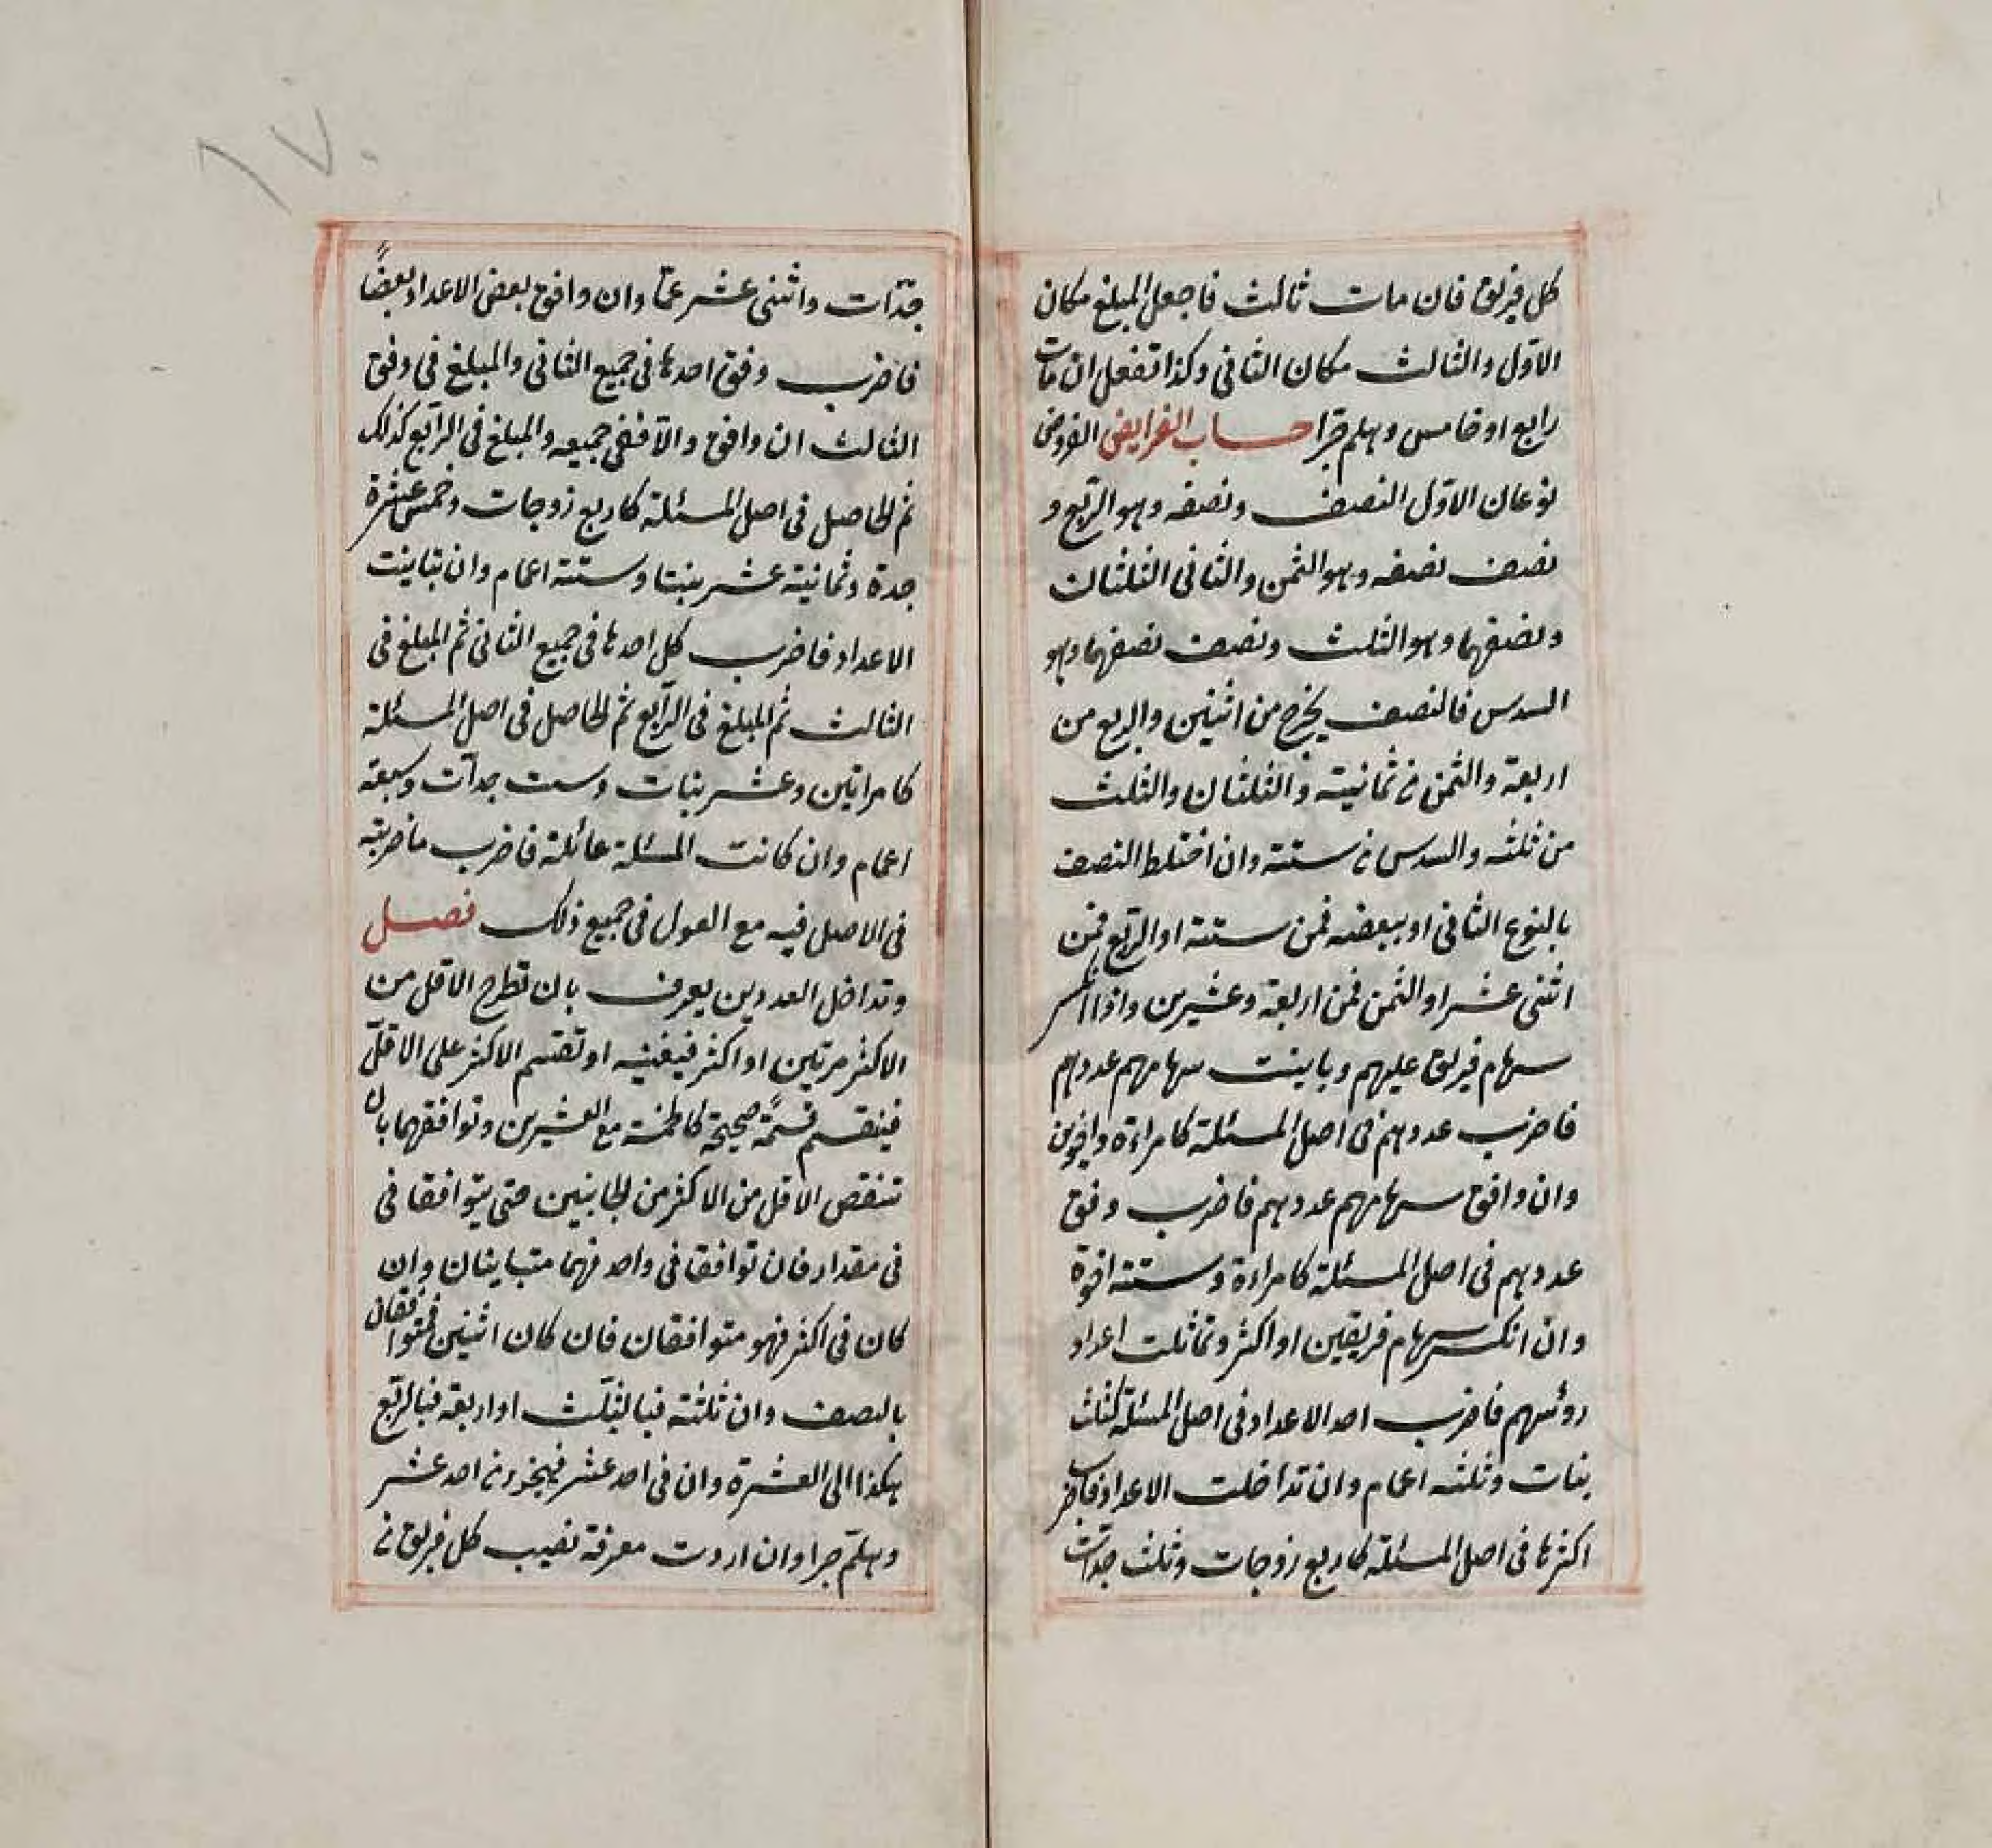 كل فريق فان مات ثالث فاجعل المبلغ مكان
الاول والثالث مكان الثاني وكذا تفعل ان مات
رابع او خامس وهلم جرا حساب الفرايض الفروض
نوعان الاول النصف ونصفه وهو الربع و
نصف نصفه وهو الثمن والثاني الثلثان
ونصفهما وهو الثلث ونصف نصفهما وهو
السدس فالنصف يخرج من اثنين والربع من
اربعة والثمن من ثمانية والثلثان والثلث
من ثلثه والسدس من ستة وان اختلط النصف
بالنوع الثاني او ببعضه فمن ستة او الربع فمن
اثنى عشر او الثمن فمن اربعة وعشرين واذا انكسر
سهام فريق عليهم وباينت سهامهم عددهم
فاضرب عددهم في اصل المسئلة كامراءة واخوين
وان وافق سهامهم عددهم فاضرب وفق
عددهم في اصل المسئلة كامراءة وستة اخوة
وان انكسر سهام فريقين او اكثر وتماثلت اعداد
رؤسهم فاضرب احد الاعداد في اصل المسئلة كثلث
بنات وثلثه اعمام وان تداخلت الاعداد فاضرب
اكثرها في اصل المسئلة كاربع زوجات وثلث جدات
١٧٠
جدّات واثنى عشر عمّا وان وافق بعض الاعداد بعضاً
فاضرب وفق احدها في جميع الثاني والمبلغ في وفق
الثالث ان وافق والّا ففي جميعه والمبلغ في الرّابع كذلك
ثم الحاصل في اصل المسئلة كاربع زوجات وخمس عشرة
جدة وثمانية عشر بنتا وستة اعمام وان تباينت
الاعداد فاضرب كل احدها في جميع الثاني ثم المبلغ في
الثالث ثم المبلغ في الرّابع ثم الحاصل في اصل المسئلة
كامراتين وعشر بنات وست جدّات وسبعة
اعمام وان كانت المسئلة عائلة فاضرب ما ضربته
في الاصل فيه مع العول في جميع ذلك فصل
وتداخل العددين يعرف بان تطرح الاقل من
الاكثر مرتين او اكثر فيفنيه او تقسم الاكثر على الاقلّ
فينقسم قسمةً صحيحة كالخمسة مع العشرين وتوافقهما بان
تنقص الاقل من الاكثر من الجانبين حتى يتوافقا في
في مقدار فان توافقا في واحد فهما متباينان وان
كان في اكثر فهو متوافقان فان كان اثنين فمتوافقان
بالنصف وان ثلثة فبالثلث او اربعة فبالربع
هكذا الى العشرة وان في احد عشر فبجزء من احد عشر
وهلمّ جرا وان اردت معرفة نصيب كل فريق من